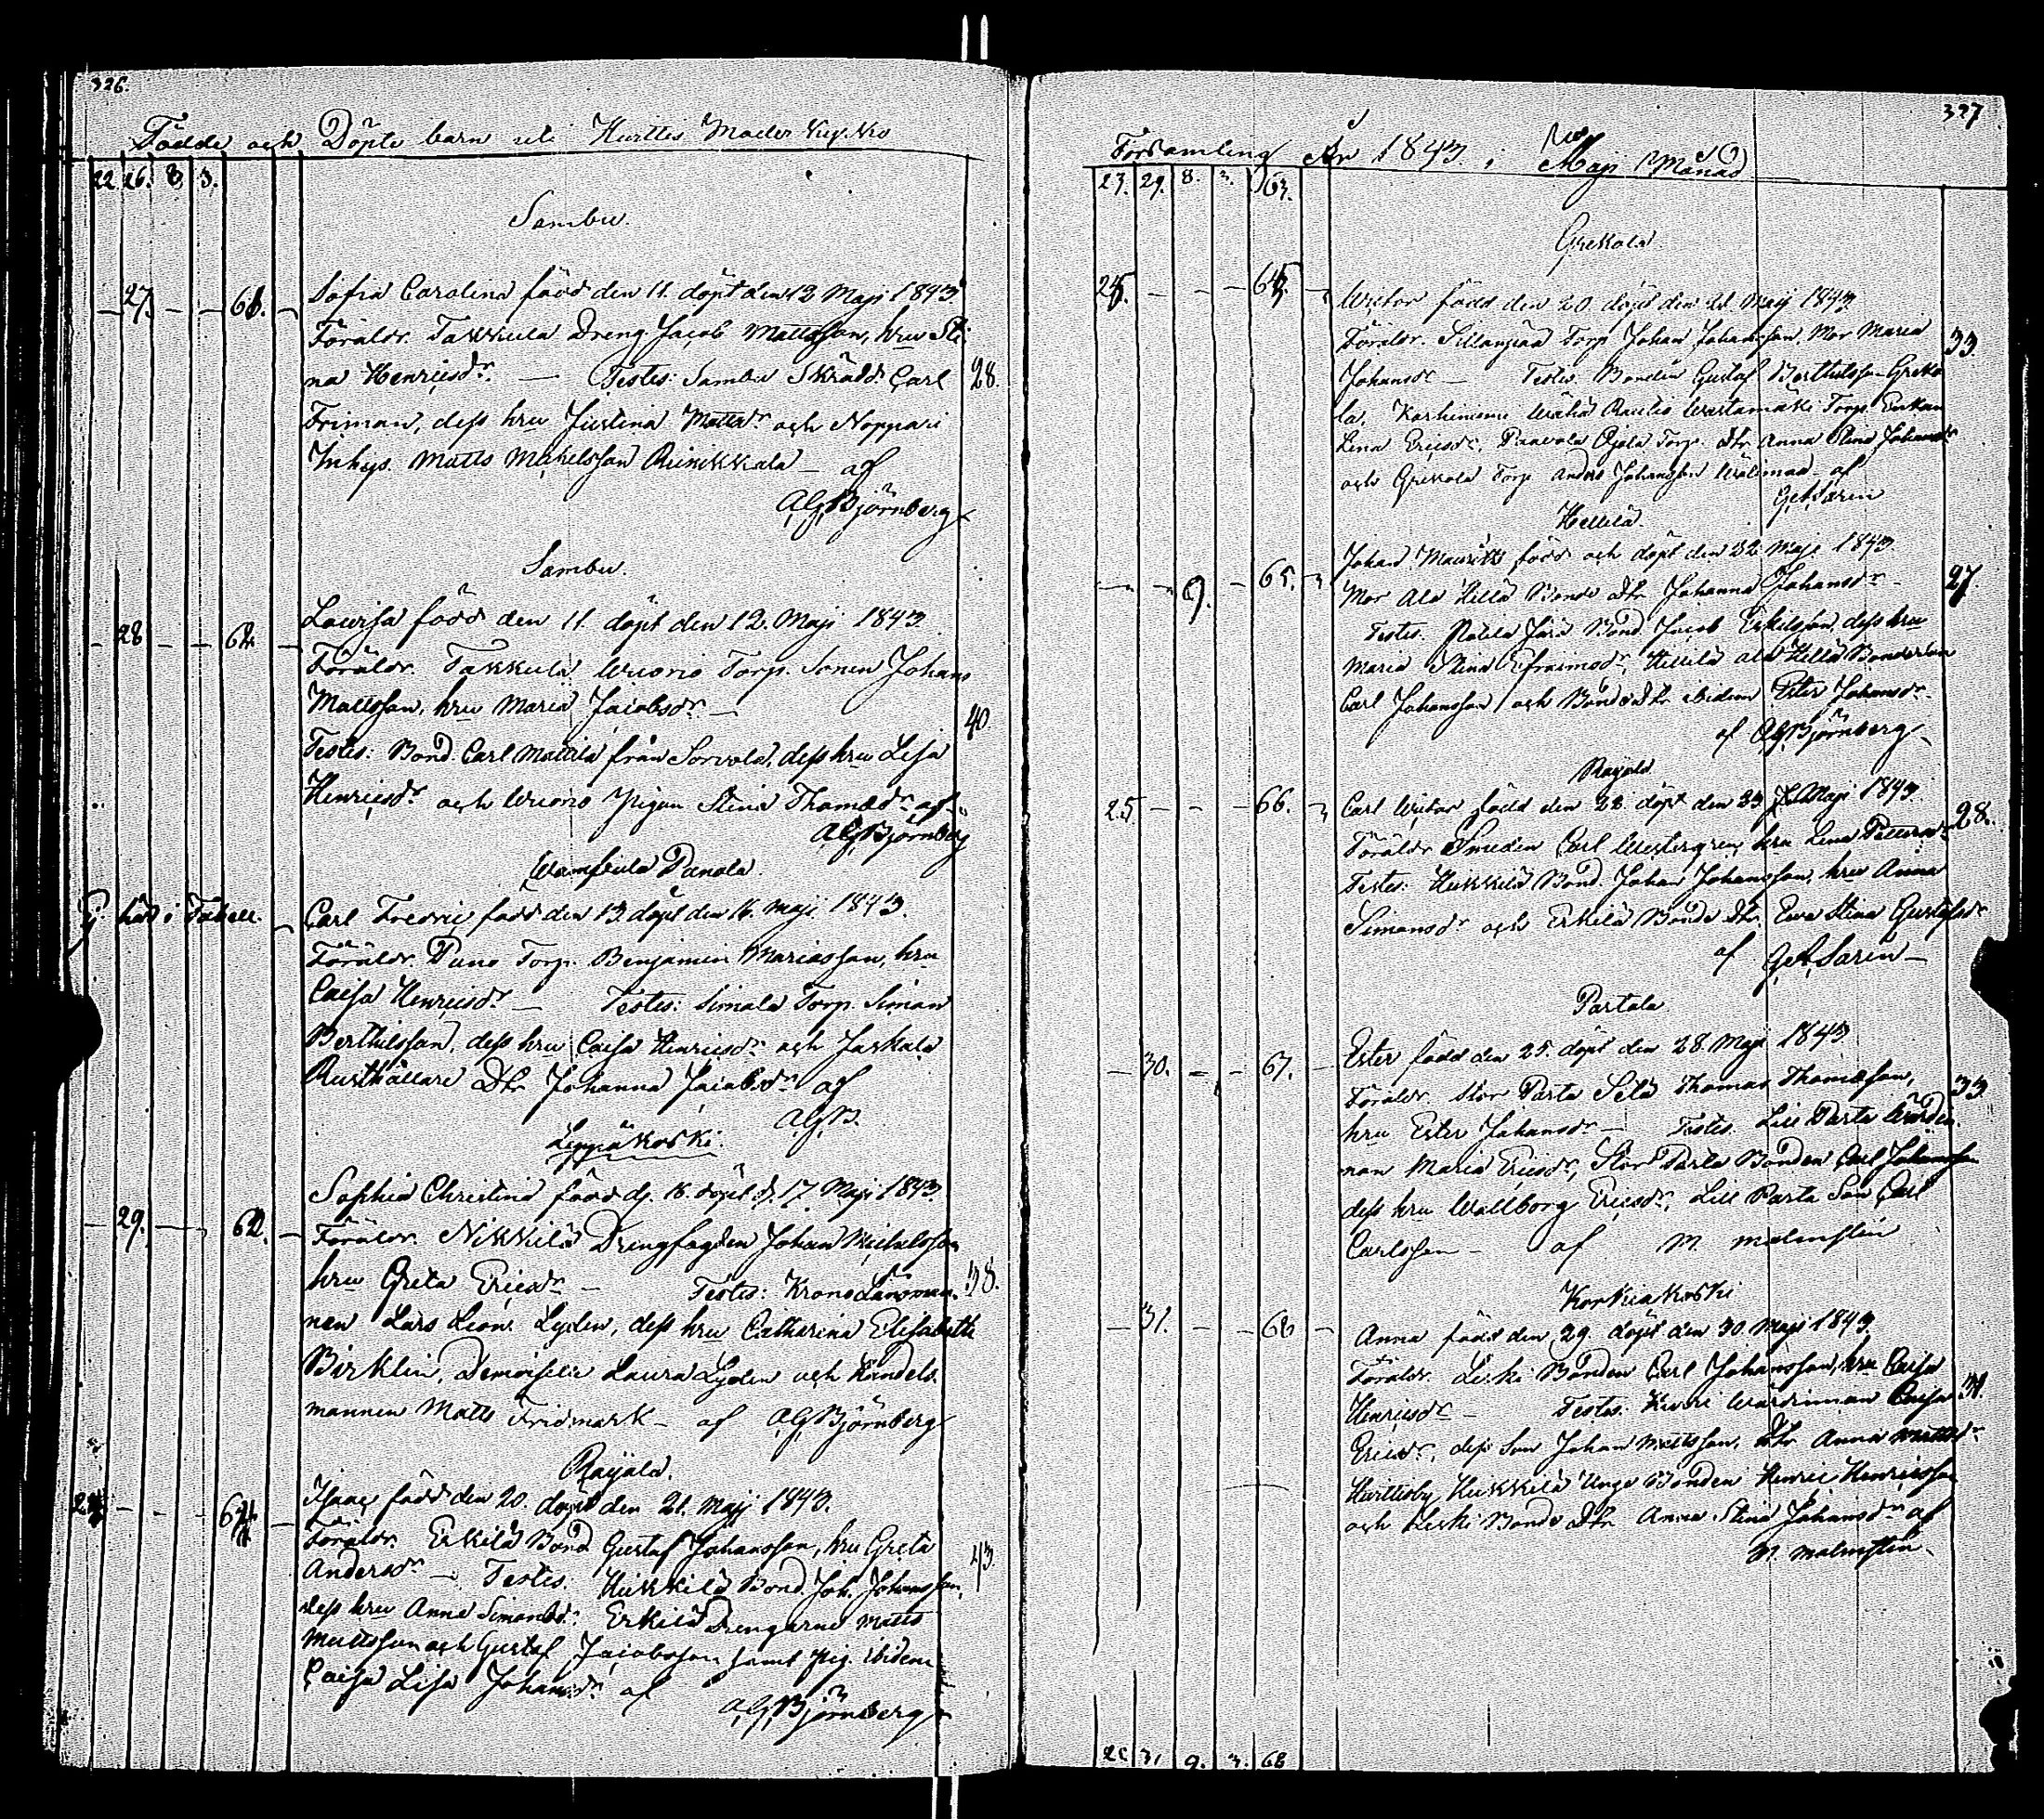 326.
Födde och Döpte barn uti Huittis Moder Kyrko
22. 26. 8. 3.
Sambu.
27. 61.
Sofia Carolina född den 11. döpt den 12 Maji 1843
Föräldr. Takkula Dreng Jacob Mattsson, hru Sti-
na Henricsdr. — Testes: Sambu Skrädd. Carl 28.
Friman, dess hru Justina Mattsdr och Noppari
Inhys. Matts Mickelsson Rinikkala — af
A.G. Björnberg
Sambu.
28 62.
Lovisa född den 11. döpt den 12. Maji 1843
Föräldr. Takkula Wuorio Torp. Sonen Johan
Mattsson, hru Maria Jacobsdr — 40
Testes: Bond. Carl Mattila från Sorvola, dess hru Lisa
Henricsdr och Wuorio Pigan Stina Thomædr af
A.G. Björnberg
Wambula Panola.
Ej förd i Tabell.
Carl Fredric född den 13. döpt den 16. Maji 1843.
Föräldr. Puno Torp. Benjamin Mariasson, hru
Caisa Henricsdr — Testes: Simola Torp. Simon
Berthilsson, dess hru Caisa Henricsdr och Jaskala
Rusthållare Dtr Johanna Jacobsdr af
A.G.B.
Leppäkoski.
29. 62.
Sophia Christina född d. 16. döpt d. 17. Maji 1843
Föräldr. Nikkilä Drengfogden Johan Michelsson
hru Greta Ericsdr — Testes: Krono Länsman- 38.
nen Lars Leon. Lydén, dess hru Catharina Elisabeth
Birklin, Demoiselle Laura Lydén och Handels-
mannen Matts Fridmark — af A.G. Björnberg
Raijala.
24
Isaac född den 20. döpt den 21. Maji 1843.
Föräldr. Erkilä Bond Gustaf Johansson, hru Greta
Andersdr — Testes: Hukkilä Bond. Joh. Johansson, 43.
dess hru Anna Simonsdr. Erkilä Drengarne Matts
Mattsson och Gustaf Jacobsson samt Pig. ibidem
Caisa Lisa Johansdr af
A.G. Björnberg
327
Församling År 1843 i Maji Månad
23. 29. 8. 3. 63.
Grekola.
Wictor född den 20. döpt den 21. Maji 1843
Föräldr. Sillanpää Torp Johan Johansson, Mor Maria 33.
Johansdr — Testes. Bonden Gustaf Berthilsson Greko
la, Karhiniemi Wähä Rautio Wartamäki Torp. Enkan
Lena Ericsdr, Paavola Ojala Torp. Dtr Anna Stina Johansdr
och Grekola Torp Anders Johansson Wälimaa — af
G.A. Sarin
Hellilä.
9. 65.
Johan Mauritz född och döpt den 22 Maji 1843.
Mor Ala Hellä Bonde Dtr Johanna Johansdr — 27.
Testes. Bond. Jacob Erkilsson, dess hru
Maria Stina Efraimsdr, Hellilä Ala Hellä Bondeson
Carl Johansson och Bonde Dtr ibidem Johansdr
af A.G. Björnberg
Raijala
25. 66.
Carl Wictor född den 22. döpt den 23 Maji 1843 28.
Föräldr Smeden Carl Westergren, hru Lena
Testes: Hukkilä Bond. Johan Johansson, hru Anna
Simonsdr och Erkilä Bonde Dtr. Eva Stina Gustafsdr
af G.A. Sarin —
Partala
30. 67.
Ester född den 25. döpt den 28. Maji 1843
Föräldr. Stor Parta Thomas Thomæson, 33.
hru Ester Johansdr — Testes. Lill Parta Wärdin-
nan Maria Ericsdr, Stor Parta Bonden Carl Johansson
dess hru Wallborg Ericsdr, Lill Parta Son Carl
Carlsson — af M. Malmstén
Korkiakoski
31. 68
Anna född den 29. döpt den 30. Maji 1843
Föräldr. Leski Bonden Carl Johansson, hru Caisa
Henricsdr — Testes: Kivri Wärdinnan Caisa 31.
Ericsdr, dess Son Johan Mattsson, Dtr Anna Mattsdr
Huittisby Hukkilä Unge Bonden Henric Henricsson
och Leski Bonde Dtr Anna Stina Johansdr af
M. Malmstén
31. 9. 3. 68